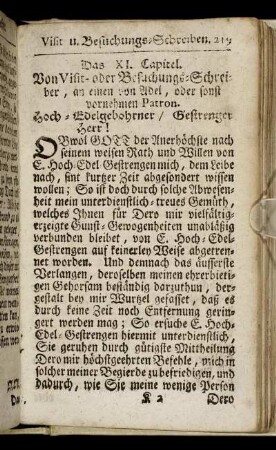 Visit u. Besuchungs-Schreiben. 219
Das XI. Capitel.
Von Visit- oder Besuchungs-Schrei
ber, an einen von Adel, oder sonst
vornehmen Patron.
Hoch-Edelgebohrner / Gestrenger
Herr!
OBwol GOTT der Allerhöchste nach
seinem weisen Rath und Willen von
E. Hoch-Edel Gestrengen mich, dem Leibe
nach, sint kurtzer Zeit abgesondert wissen
wollen; So ist doch durch solche Abwesen-
heit mein unterdienstlich-treues Gemüth,
welches Ihnen für Dero mir vielfältig-
erzeigte Gunst-Gewogenheiten unabläßig
verbunden bleibet, von E. Hoch-Edel-
Gestrengen auf keinerley Weise abgetren-
net worden. Und demnach das äusserste
Verlangen, deroselben meinen ehrerbieti-
gen Gehorsam beständig darzuthun, der-
gestalt bey mir Wurtzel gefasset, daß es
durch keine Zeit noch Entfernung gerin-
gert werden mag; So ersuche E. Hoch-
Edel-Gestrengen hiermit unterdienstlich,
Sie geruhen durch gütigste Mittheilung
Dero mir höchstgeehrten Befehle, mich in
solcher meiner Begierde zu befriedigen, und
dadurch, wie Sie meine wenige Person
K 2 Dero